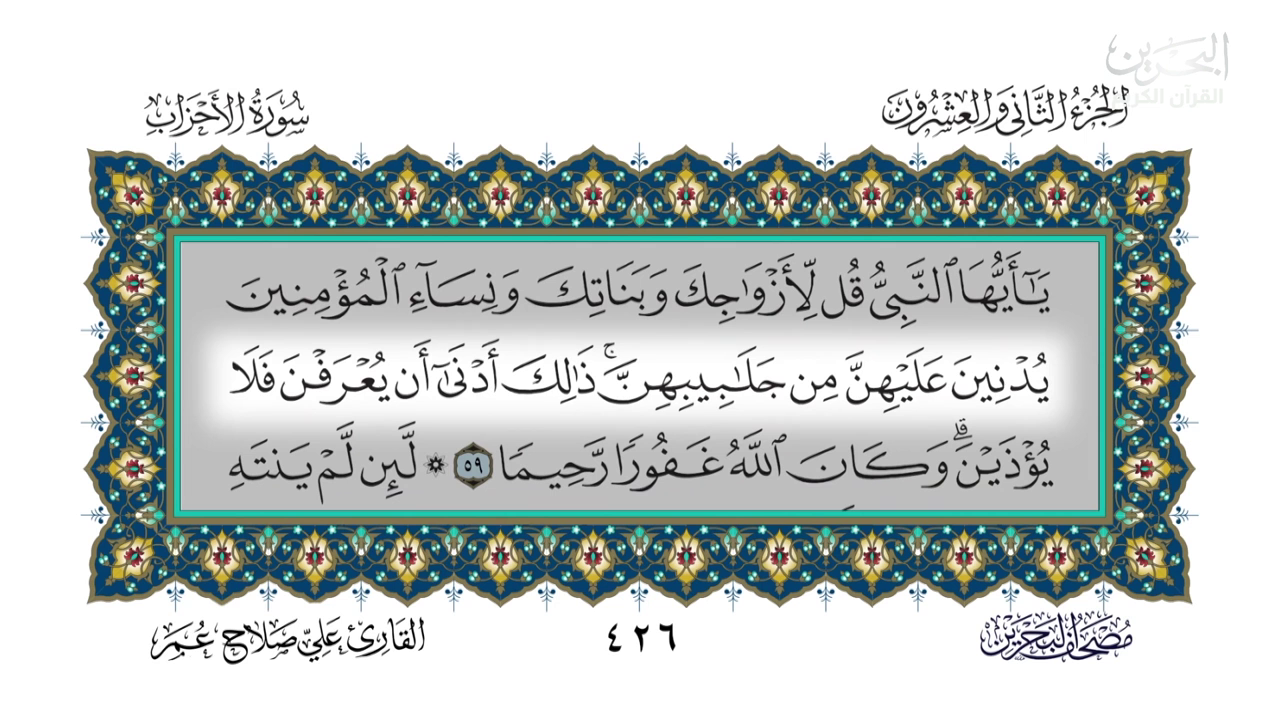 البحرين
القرآن الكريم
الجزء الثاني والعشرون
سُورَةُ الأَحْزَابِ
يَٰٓأَيُّهَا ٱلنَّبِىُّ قُل لِّأَزْوَٰجِكَ وَبَنَاتِكَ وَنِسَآءِ ٱلْمُؤْمِنِينَ
يُدْنِينَ عَلَيْهِنَّ مِن جَلَٰبِيبِهِنَّ ۚ ذَٰلِكَ أَدْنَىٰٓ أَن يُعْرَفْنَ فَلَا
يُؤْذَيْنَ ۗ وَكَانَ ٱللَّهُ غَفُورًا رَّحِيمًا ٥٩ ۞ لَّئِن لَّمْ يَنتَهِ
مُصْحَف البَحْرَين
٤٢٦
القَارِئ عَلِيّ صَلَاح عُمَر